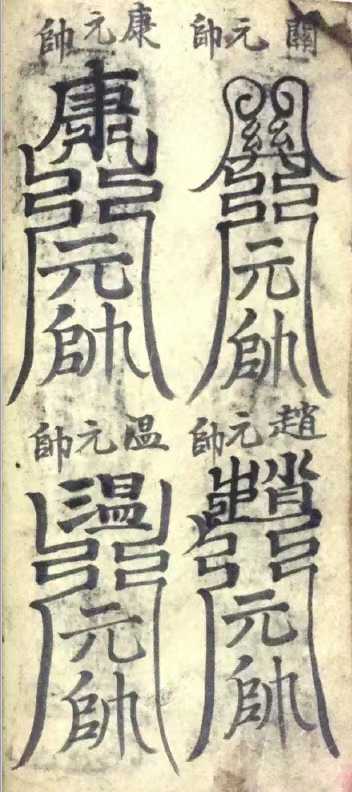 關元帥
關元帥
康元帥
康元帥
趙元帥
趙元帥
温元帥
温元帥